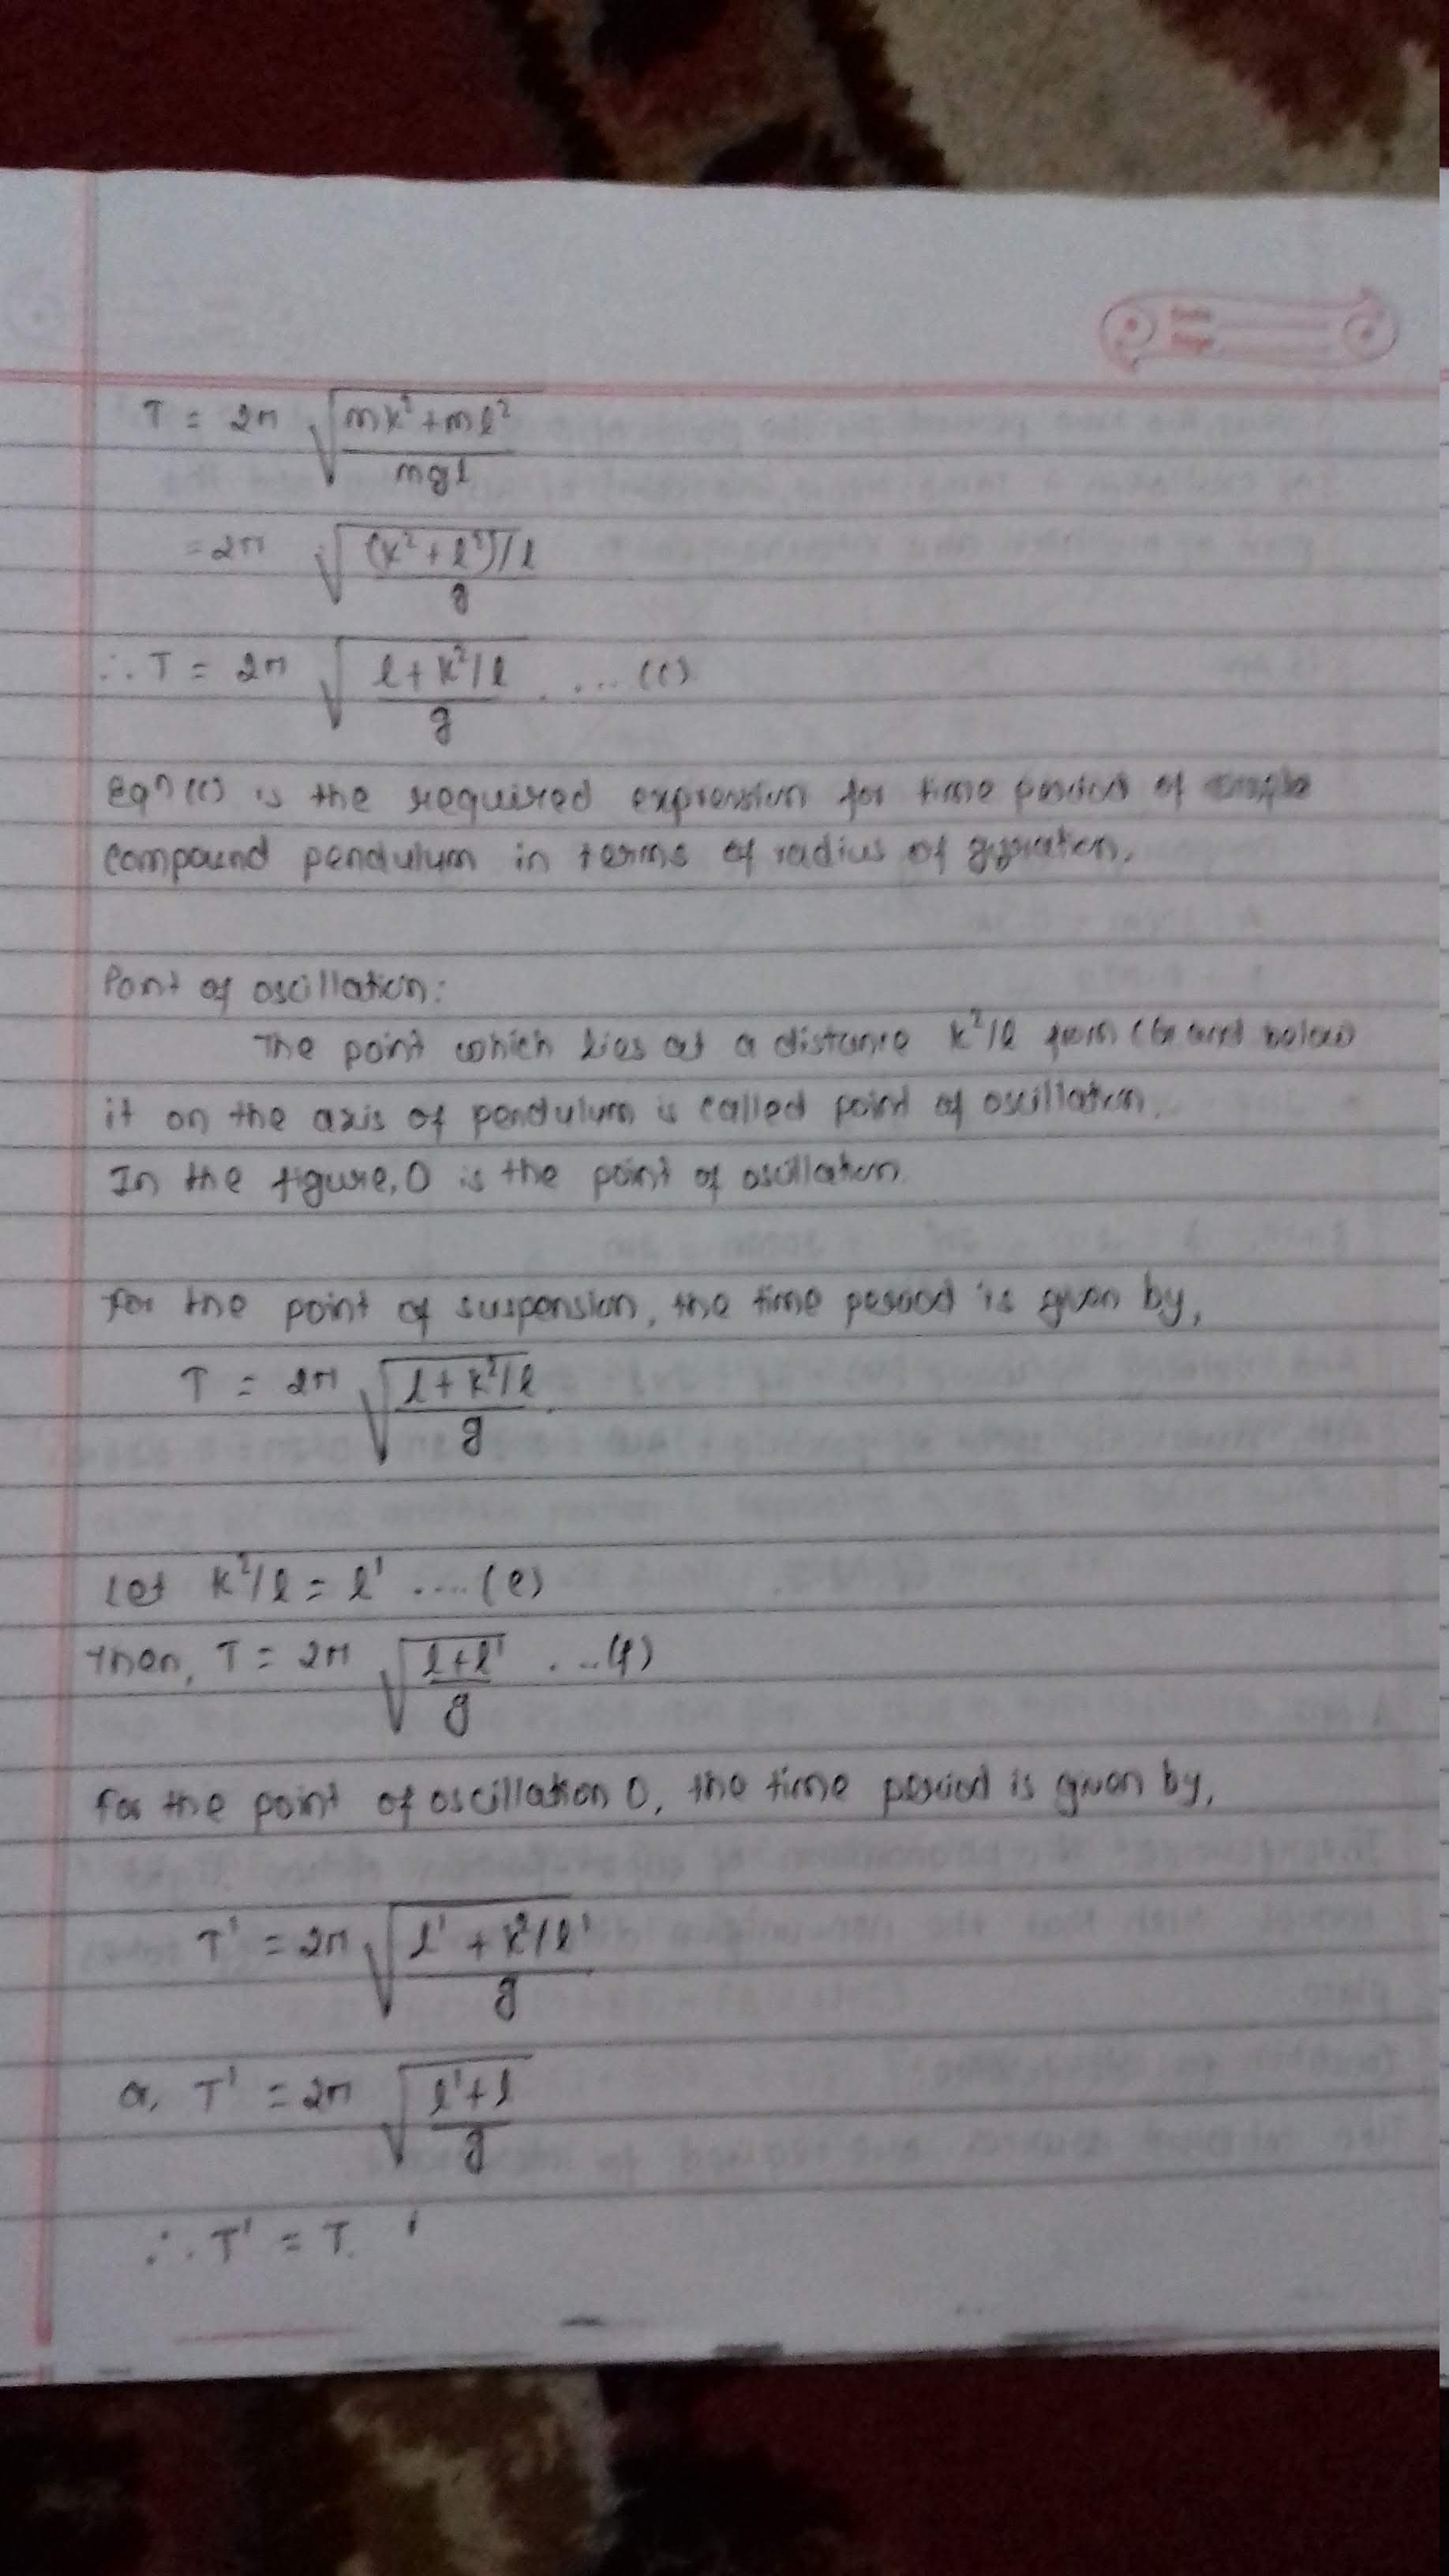 T = 2π √(mk²+ml² / mgl)
= 2π √((k²+l²)/l / g)
∴ T = 2π √(l+k²/l / g) .... (c)
Eqn (c) is the required expression for time period of
compound pendulum in terms of radius of gyration.
Pont of oscillation:
The point which lies at a distance k²/l from CG and below
it on the axis of pendulum is called point of oscillation.
In the figure, O is the point of oscillation.
For the point of suspension, the time period is given by,
T = 2π √(l+k²/l / g)
Let k²/l = l' .... (e)
Then, T = 2π √(l+l' / g) ... (f)
For the point of oscillation O, the time period is given by,
T' = 2π √(l' + k²/l' / g)
or, T' = 2π √(l'+l / g)
∴ T' = T.